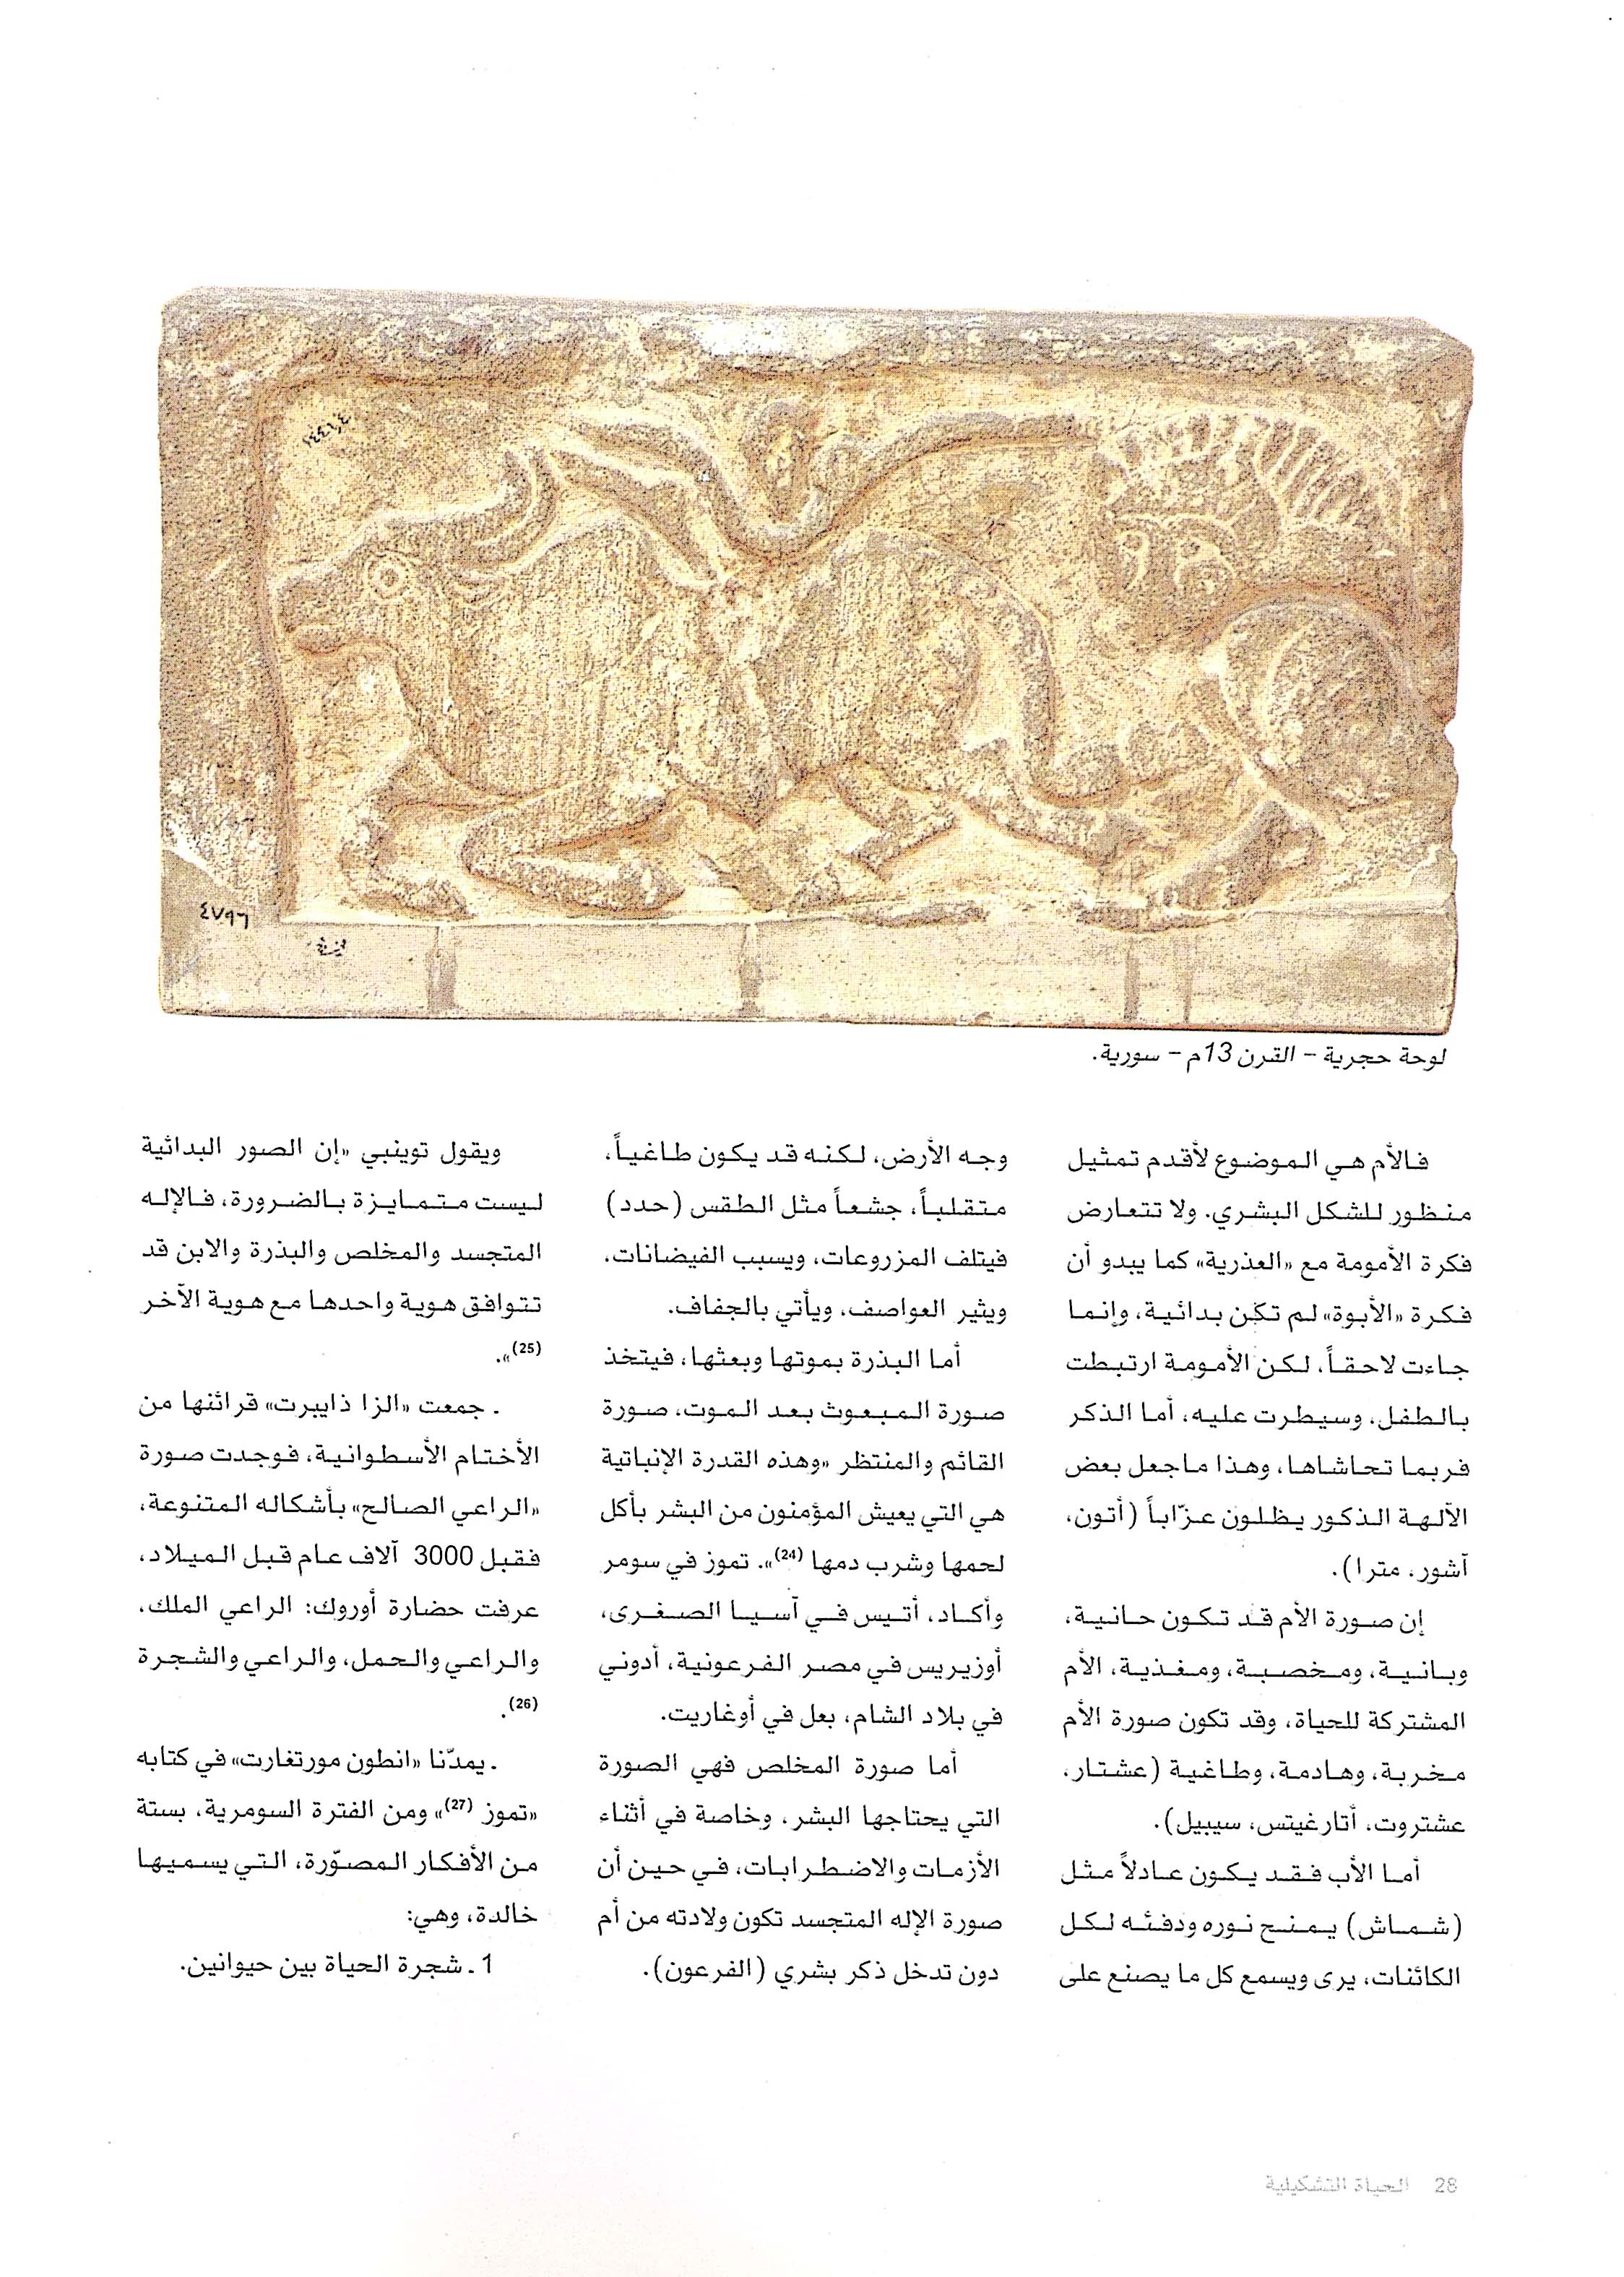 ١٤٤٦,٤
٤٧٩٦
لوحة حجرية – القرن 13م – سورية.
فالأم هي الموضوع لأقدم تمثيل
منظور للشكل البشري. ولا تتعارض
فكرة الأمومة مع «العذرية» كما يبدو أن
فكرة «الأبوة» لم تكن بدائية، وإنما
جاءت لاحقاً، لكن الأمومة ارتبطت
بالطفل، وسيطرت عليه، أما الذكر
فربما تحاشاها، وهذا ماجعل بعض
الآلهة الذكور يظلون عزّاباً (أتون،
آشور، مترا).
إن صورة الأم قد تكون حانية،
وبانية، ومخصبة، ومغذية، الأم
المشتركة للحياة، وقد تكون صورة الأم
مخربة، وهادمة، وطاغية (عشتار،
عشتروت، أتارغيتس، سيبيل).
أما الأب فقد يكون عادلاً مثل
(شماش) يمنح نوره ودفئه لكل
الكائنات، يرى ويسمع كل ما يصنع على
وجه الأرض، لكنه قد يكون طاغياً،
متقلباً، جشعاً مثل الطقس (حدد)
فيتلف المزروعات، ويسبب الفيضانات،
ويثير العواصف، ويأتي بالجفاف.
أما البذرة بموتها وبعثها، فيتخذ
صورة المبعوث بعد الموت، صورة
القائم والمنتظر «وهذه القدرة الإنباتية
هي التي يعيش المؤمنون من البشر بأكل
لحمها وشرب دمها (24)». تموز في سومر
وأكاد، أتيس في آسيا الصغرى،
أوزيريس في مصر الفرعونية، أدوني
في بلاد الشام، بعل في أوغاريت.
أما صورة المخلص فهي الصورة
التي يحتاجها البشر، وخاصة في أثناء
الأزمات والاضطرابات، في حين أن
صورة الإله المتجسد تكون ولادته من أم
دون تدخل ذكر بشري (الفرعون).
ويقول توينبي «إن الصور البدائية
ليست متمايزة بالضرورة، فالإله
المتجسد والمخلص والبذرة والابن قد
تتوافق هوية واحدها مع هوية الآخر
(25)».
. جمعت «الزا ذايبرت» قرائنها من
الأختام الأسطوانية، فوجدت صورة
«الراعي الصالح» بأشكاله المتنوعة،
فقبل 3000 آلاف عام قبل الميلاد،
عرفت حضارة أوروك: الراعي الملك،
والراعي والحمل، والراعي والشجرة
(26).
. يمدّنا «انطون مورتغارت» في كتابه
«تموز (27)» ومن الفترة السومرية، بستة
من الأفكار المصوّرة، التي يسميها
خالدة، وهي:
1 ـ شجرة الحياة بين حيوانين.
28 الحياة التشكيلية